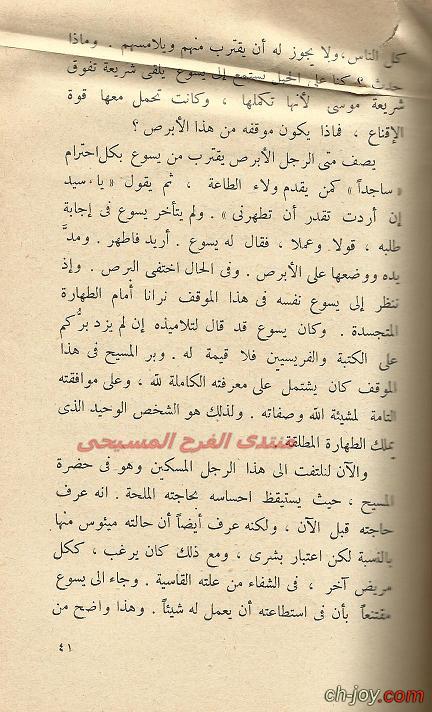 كل الناس، ولا يجوز له أن يقترب منهم ويلامسهم . وماذا
حدث ؟ كنا على الجبل نستمع إلى يسوع يلقى شريعة تفوق
شريعة موسى لأنها تكملها ، وكانت تحمل معها قوة
الإقناع ، فماذا يكون موقفه من هذا الأبرص ؟
يصف متى الرجل الأبرص يقترب من يسوع بكل احترام
« ساجداً » كمن يقدم ولاء الطاعة ، ثم يقول « يا سيد
إن أردت تقدر أن تطهرنى » . ولم يتأخر يسوع فى إجابة
طلبه ، قولا وعملا ، فقال له يسوع . أريد فاطهر . ومدَّ
يده ووضعها على الأبرص . وفى الحال اختفى البرص . وإذ
ننظر إلى يسوع نفسه فى هذا الموقف نرانا أمام الطهارة
المتجسدة . وكان يسوع قد قال لتلاميذه إن لم يزد برُّكم
على الكتبة والفريسيين فلا قيمة له . وبر المسيح فى هذا
الموقف كان يشتمل على معرفته الكاملة لله ، وعلى موافقته
التامة لمشيئة الله وصفاته . ولذلك هو الشخص الوحيد الذى
يملك الطهارة المطلقة .
منتدى الفرح المسيحى
والآن لنلتفت الى هذا الرجل المسكين وهو فى حضرة
المسيح ، حيث يستيقظ احساسه بحاجته الملحة . انه عرف
حاجته قبل الآن ، ولكنه عرف أيضاً أن حالته ميئوس منها
بالنسبة لكل اعتبار بشرى ، ومع ذلك كان يرغب ، ككل
مريض آخر ، فى الشفاء من علته القاسية . وجاء الى يسوع
مقتنعاً بأن فى استطاعته أن يعمل له شيئاً . وهذا واضح من
٤١
ch-joy.com